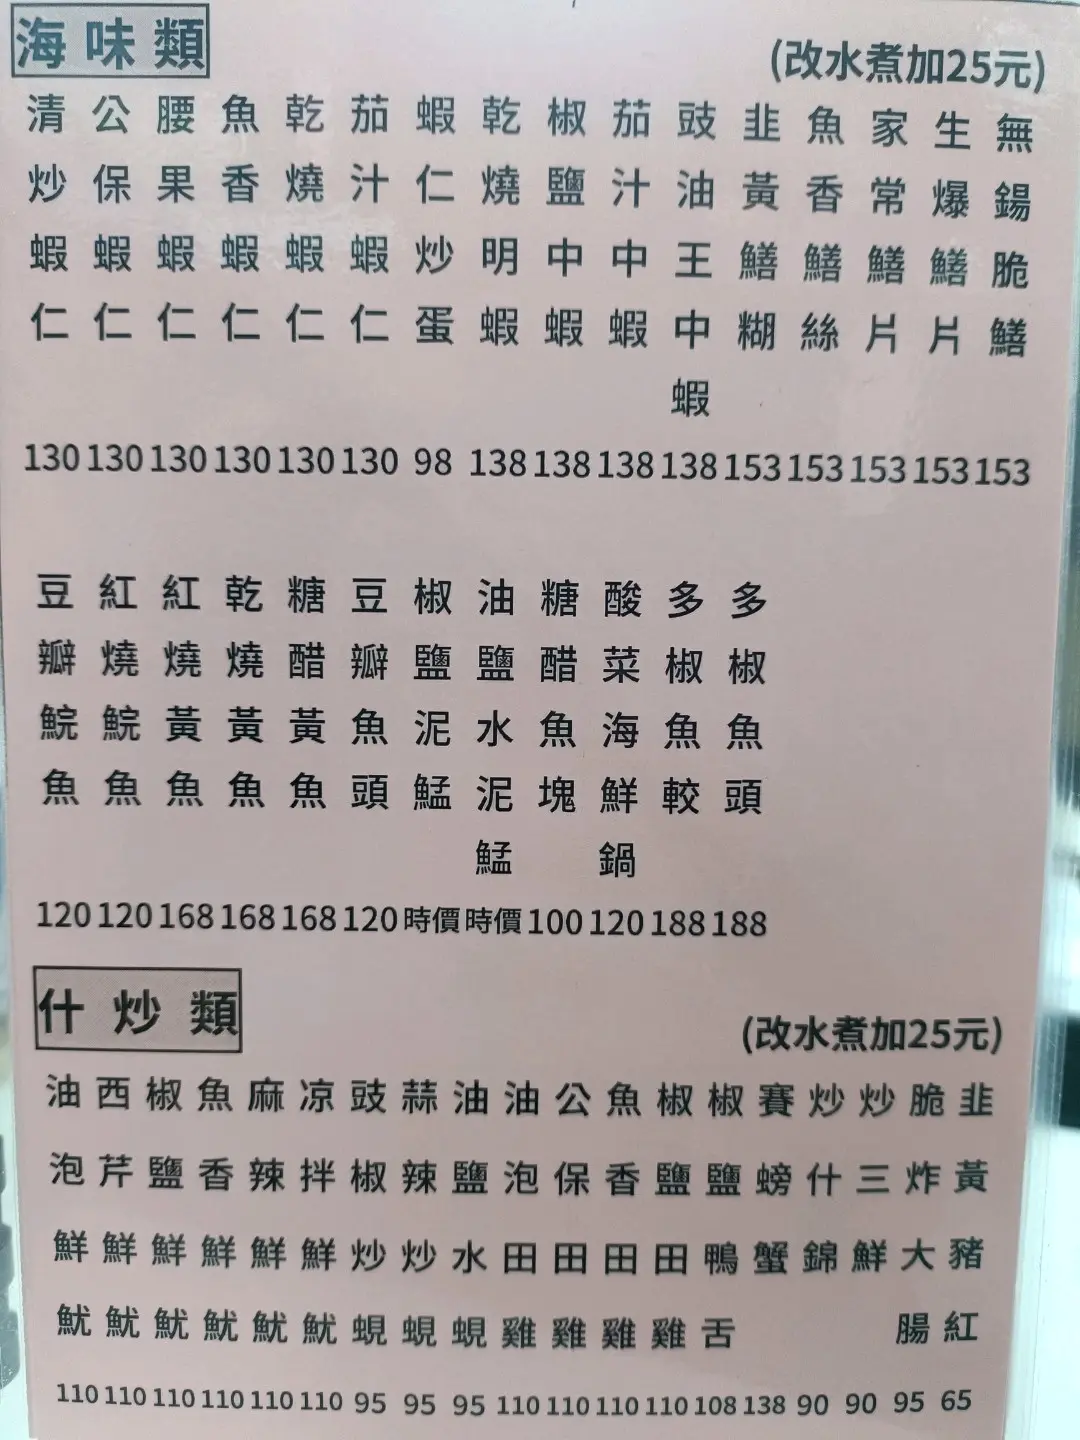 海味類
(改水煮加25元)
清炒蝦仁 130
公保蝦仁 130
腰果蝦仁 130
魚香蝦仁 130
乾燒蝦仁 130
茄汁蝦仁 130
蝦仁炒蛋 98
乾燒明蝦 138
椒鹽中蝦 138
茄汁中蝦 138
豉油王中蝦 138
韭黃鱔糊 153
魚香鱔絲 153
家常鱔片 153
生爆鱔片 153
無錫脆鱔 153
豆瓣鯇魚 120
紅燒鯇魚 120
紅燒黃魚 168
乾燒黃魚 168
糖醋黃魚 168
豆瓣魚頭 120
椒鹽泥鯭 時價
油鹽水泥鯭 時價
糖醋魚塊 100
酸菜海鮮鍋 120
多椒魚較 188
多椒魚頭 188
什炒類
(改水煮加25元)
油泡鮮魷 110
西芹鮮魷 110
椒鹽鮮魷 110
魚香鮮魷 110
麻辣鮮魷 110
凉拌鮮魷 110
豉椒炒蜆 95
蒜辣炒蜆 95
油鹽水蜆 95
油泡田雞 110
公保田雞 110
魚香田雞 110
椒鹽田雞 110
椒鹽鴨舌 108
賽螃蟹 138
炒什錦 90
炒三鮮 90
脆炸大腸 95
韭黃豬紅 65